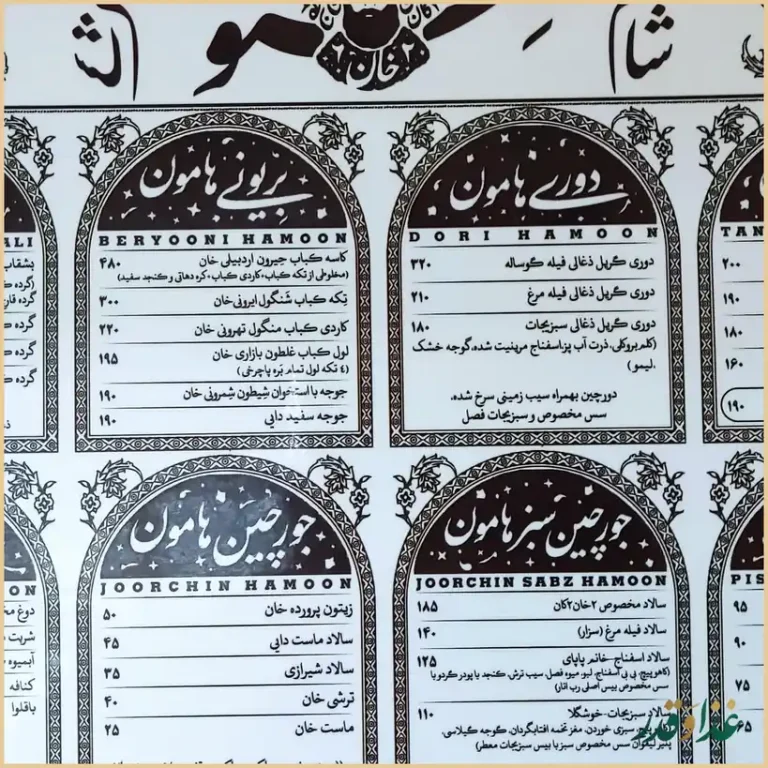 ۲خان۲
دوری هامون
DORI HAMOON
دوری گریل ذغالی فیله گوساله ۳۲۰
دوری گریل ذغالی فیله مرغ ۲۱۰
دوری گریل ذغالی سبزیجات ۱۸۰
(کلم بروکلی، ذرت آب پز، اسفناج مرینیت شده، گوجه خشک
،لیمو)
دورچین بهمراه سیب زمینی سرخ شده،
سس مخصوص و سبزیجات فصل
بریونی هامون
BERYOONI HAMOON
کاسه کباب جیرون اردبیلی خان ۴۸۰
(مخلوطی از تکه کباب، کاردی کباب، کره دهاتی و کنجد سفید)
تکه کباب شنگول ایرونی خان ۳۰۰
کاردی کباب منگول تهرونی خان ۲۲۰
لول کباب غلطون بازاری خان ۱۹۵
(٤ تکه لول تمام بره پاچرخی)
جوجه با استخوان شیطون شمرونی خان ۱۹۰
جوجه سفید دایی ۱۹۰
TAN
۲۰۰
۱۹۰
۱۸۰
۱۶۰
۱۹۰
ALI
بشقاب
جورچین سبز هامون
JOORCHIN SABZ HAMOON
سالاد مخصوص ۲خان۲کان ۱۸۵
سالاد فیله مرغ (سزار) ۱۴۰
سالاد اسفناج-خانم پاپای ۱۲۵
(کاهو پیچ، بی بی اسفناج، لبو، میوه فصل، سیب ترش، کنجد با پودر گردو با
سس مخصوص بیس اصلی رب انار)
سالاد سبزیجات-خوشگلا ۱۱۰
سبزی خوردن، مغز تخمه آفتابگردان، گوجه گیلاسی،
پنیر لیقوان سس مخصوص سبز با بیس سبزیجات معطر)
جورچین هامون
JOORCHIN HAMOON
زیتون پرورده خان ۵۰
سالاد ماست دایی ۴۵
سالاد شیرازی ۳۵
ترشی خان ۴۰
ماست خان ۲۵
PIS
۹۵
۹۰
۷۵
۶۵
ON
دوغ
شربت
آبمیوه
کنافه
باقلوا
غذا و قدر